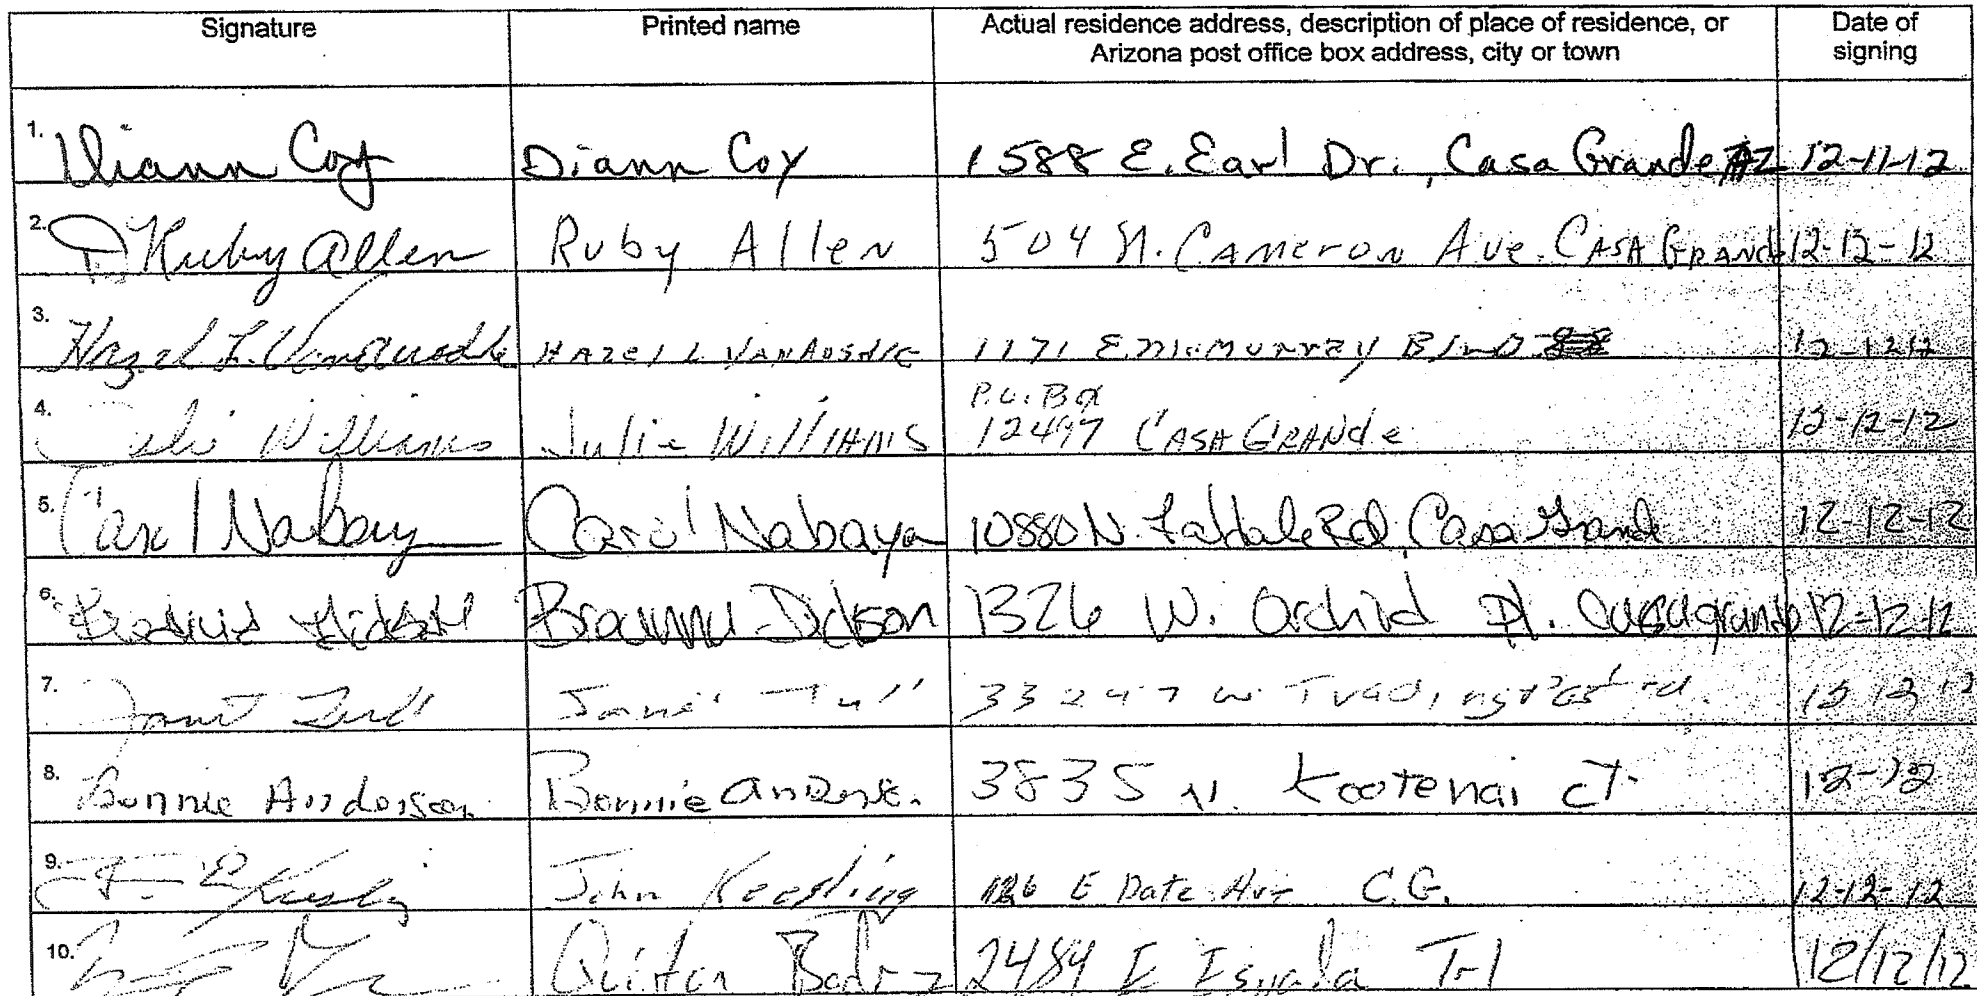 Signature Printed name Actual residence address, description of place of residence, or Arizona post office box address, city or town Date of signing
1. Diann Cox Diann Cox 1588 E. Earl Dr., Casa Grande, AZ 12-11-12
2. D Ruby Allen Ruby Allen 504 N. Cameron Ave. Casa Grande 12-12-12
3. Hazel L. VanAusdle Hazel L VanAusdle 1171 E. McMurray Blvd 12-12-12
4. Julie Williams Julie Williams P.O. Box 12497 Casa Grande 12-12-12
5. Carol Nabaya Carol Nabaya 10880 N. Rd, Casa Grande 12-12-12
6. Dickson 1326 W. Orchid Pl. Casagrande 12-12-12
7. 33247 W. 12 12 12
8. Bonnie Anderson Bonnie 3835 N. Kootenai CT. 12-12
9. John Keesling E Date Ave C.G. 12-12-12
10. 2484 E Trl 12/12/12